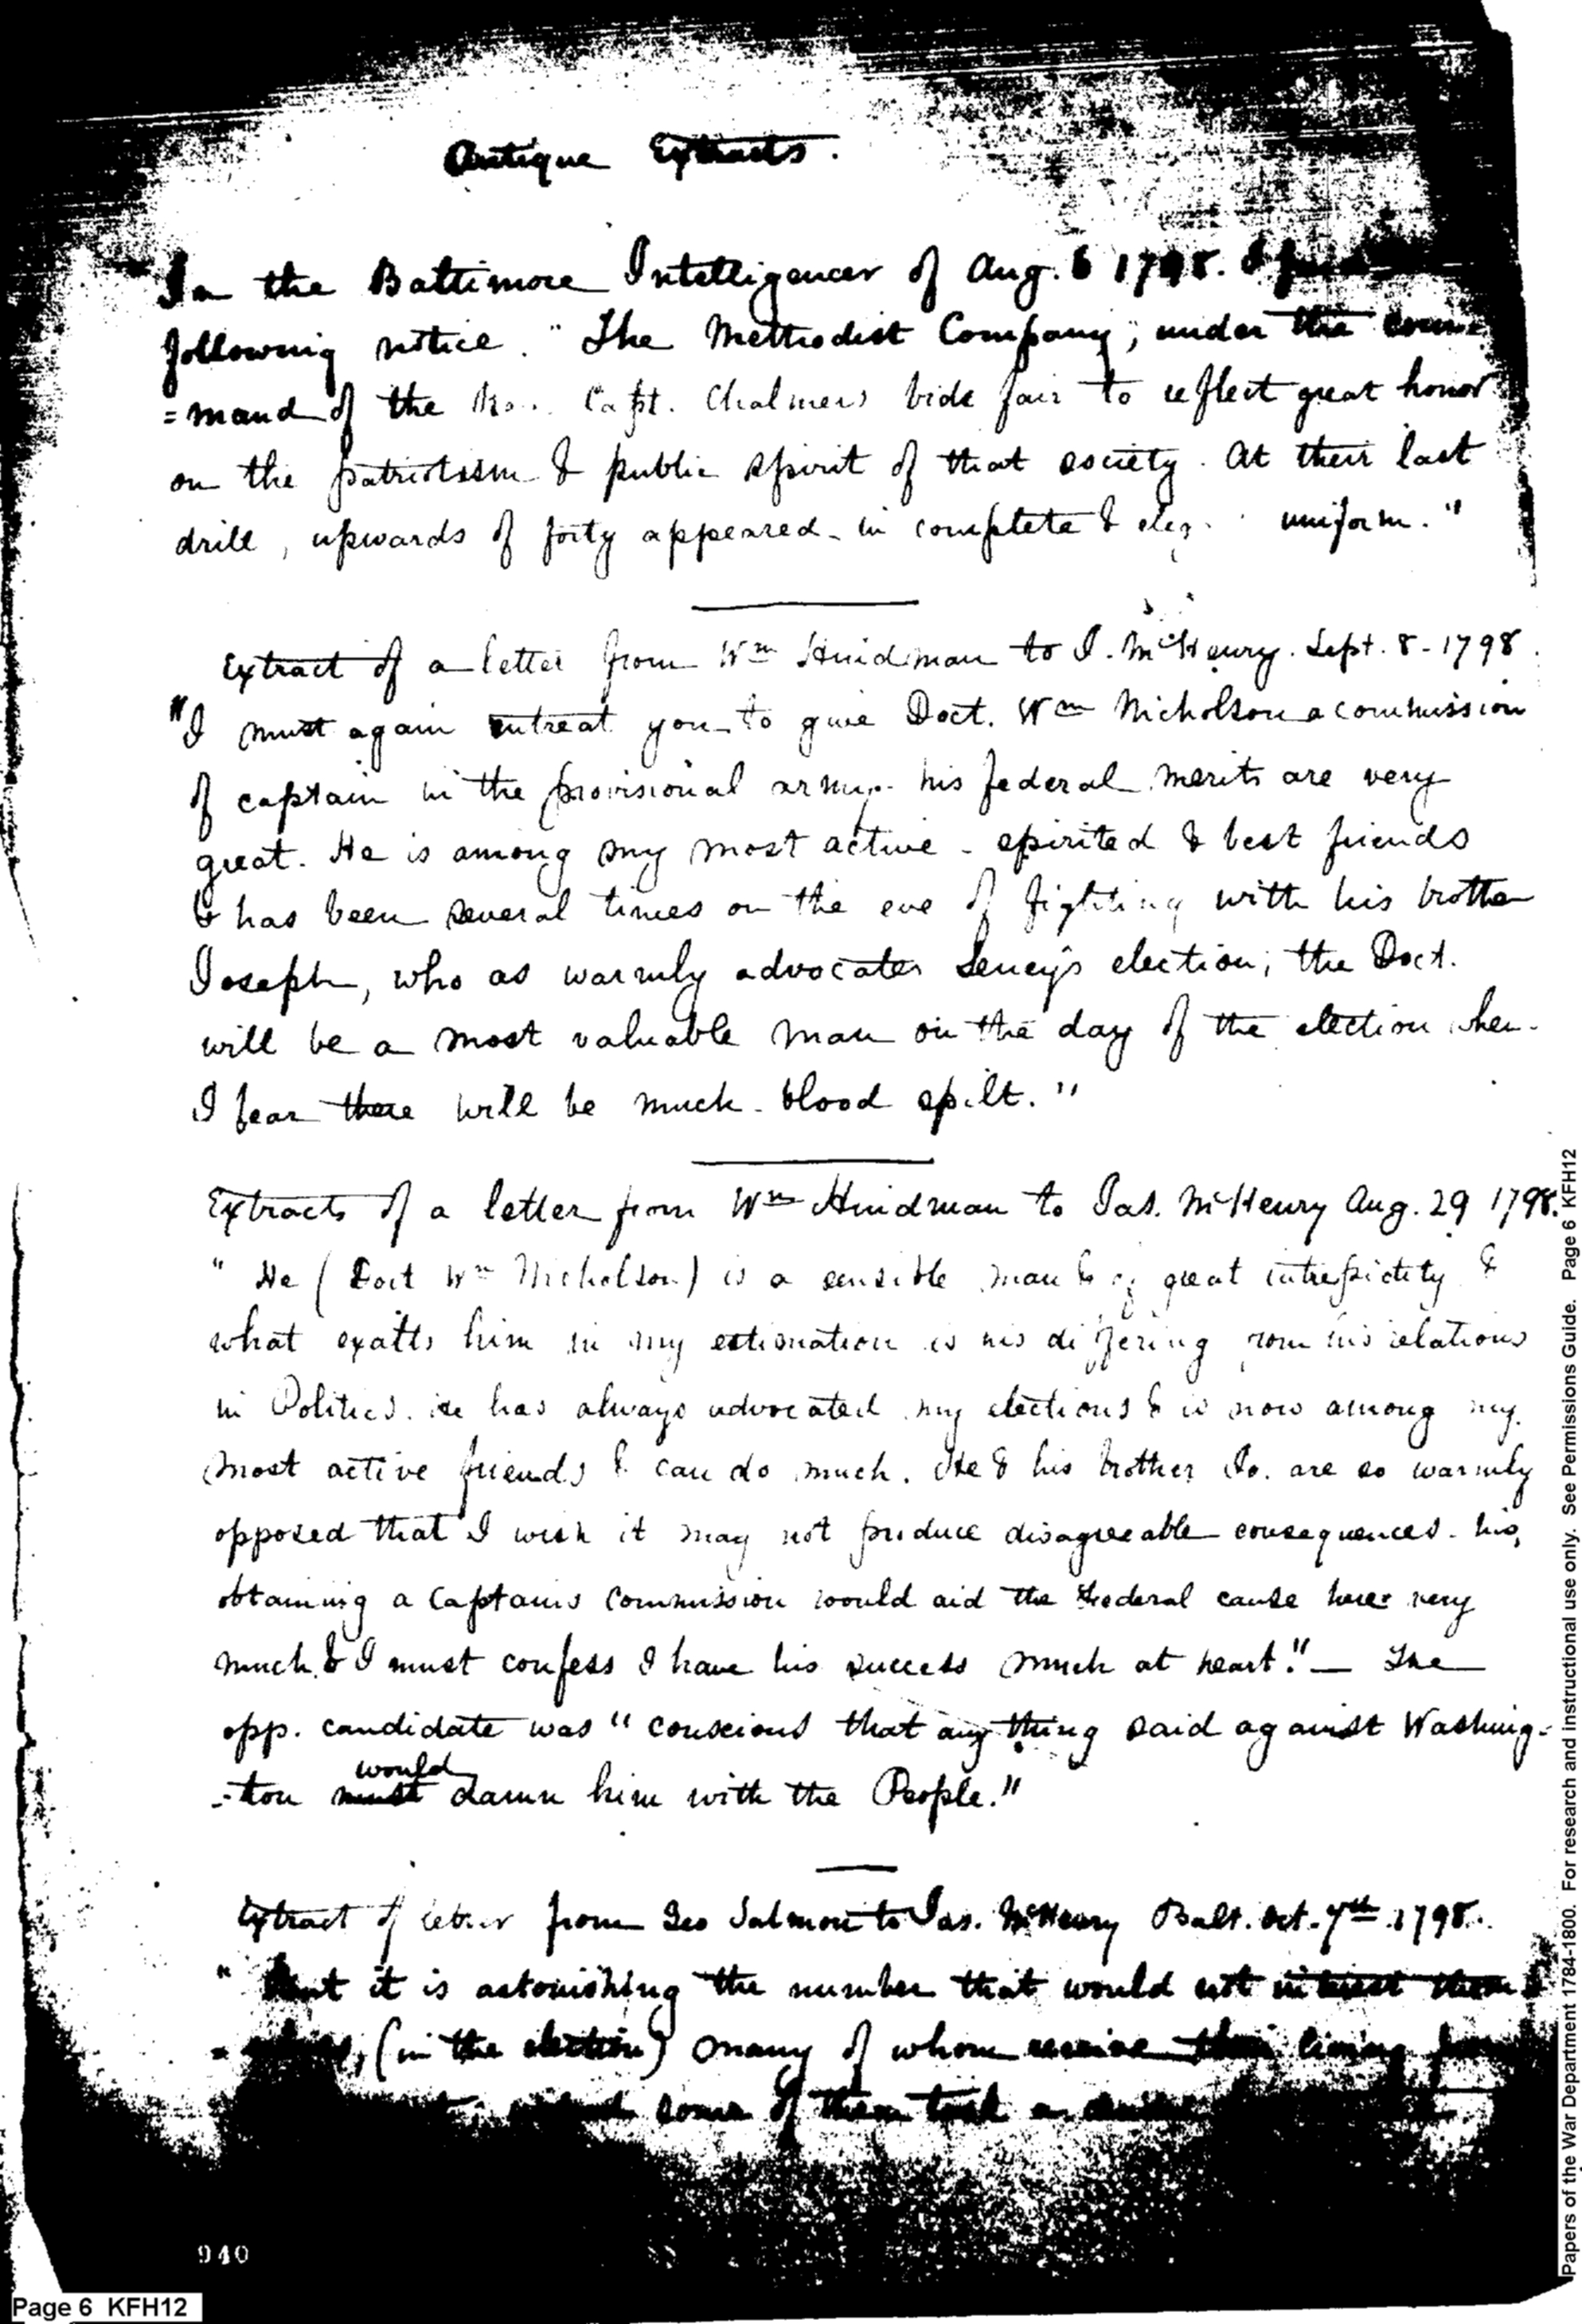 Antique Extracts.
In the Baltimore Intelligencer of Aug. 6 1798. I
following notice. "The Methodist Company", under the com
=mand of the Capt. Chalmers bids fair to reflect great honor
on the patriotism & public spirit of that society. At their last
drill, upwards of forty appeared in complete & uniform."
Extract of a letter from Wm Hindman to J. McHenry. Sept. 8 - 1798.
"I must again entreat you to give Doct. Wm Nicholson a commission
of captain in the provisional army - his federal merits are very
great. He is among my most active - spirited & best friends
& has been several times on the eve of fighting with his brother
Joseph, who as warmly advocates Seney's election; the Doct.
will be a most valuable man on the day of the election when
I fear there will be much blood spilt."
Extracts of a letter from Wm Hindman to Jas. McHenry Aug. 29 1798.
"He (Doct Wm Nicholson) is a sensible man & of great intrepidity &
what exalts him in my estimation is his differing from his relations
in Politics. He has always advocated my elections & is now among my
most active friends & can do much. He & his brother Jo. are so warmly
opposed that I wish it may not produce disagreeable consequences - his
obtaining a Captains Commission would aid the Federal cause here very
much & I must confess I have his success much at heart." — The
opp. candidate was "conscious that any thing said against Washing-
-ton must would damn him with the People."
Extract of letter from Geo Salmon to Jas. McHenry Balt. Oct. 7th 1798.
" it is astonishing the number that would not interest them
(in the election) many of whom receive their living
some of them took a
940
Page 6 KFH12
Papers of the War Department 1784-1800. For research and instructional use only. See Permissions Guide. Page 6 KFH12